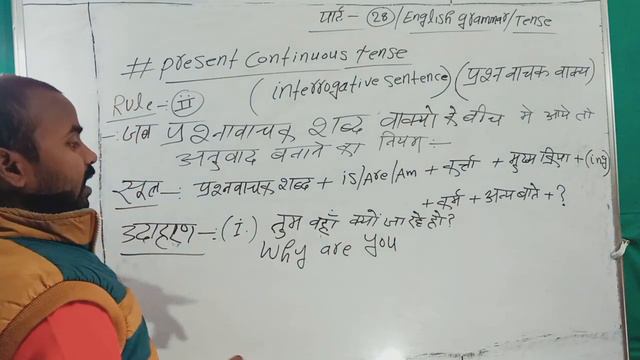 पार्ट- (28) / English grammar / Tense
# Present Continuous tense
(interrogative sentence) (प्रश्नवाचक वाक्य)
Rule-: (II)
-: जब प्रश्नवाचक शब्द वाक्यो के बीच मे आये तो
अनुवाद बनाने का नियम:-
सूत्र-: प्रश्नवाचक शब्द + is/Are/Am + कर्त्ता + मुख्य क्रिया + (ing)
+ कर्म + अन्य बाते + ?
उदाहरण-: (I.) तुम वहाँ क्यों जा रहे हो?
Why are you